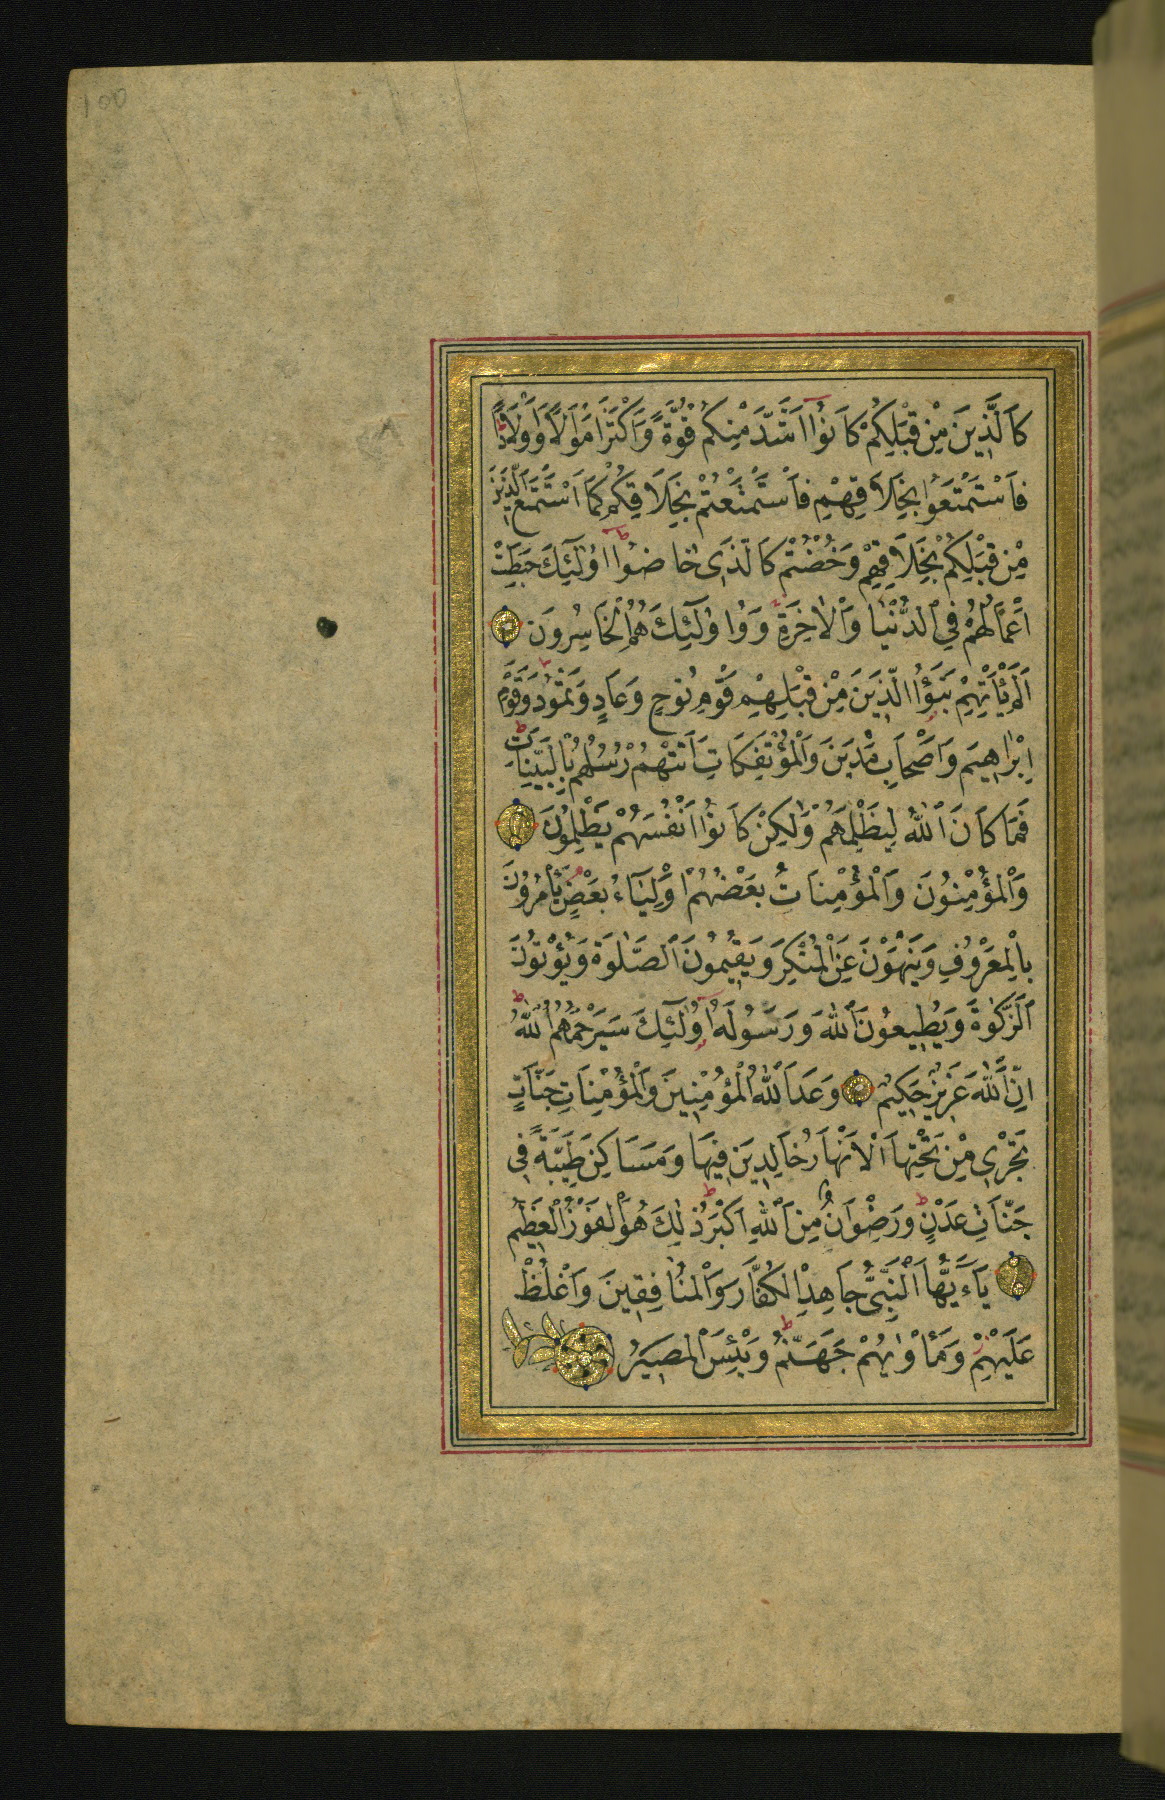 100
كَالَّذِينَ مِنْ قَبْلِكُمْ كَانُوا أَشَدَّ مِنْكُمْ قُوَّةً وَأَكْثَرَ أَمْوَالًا وَأَوْلَادًا
فَاسْتَمْتَعُوا بِخَلَاقِهِمْ فَاسْتَمْتَعْتُمْ بِخَلَاقِكُمْ كَمَا اسْتَمْتَعَ الَّذِينَ
مِنْ قَبْلِكُمْ بِخَلَاقِهِمْ وَخُضْتُمْ كَالَّذِي خَاضُوا أُولَٰئِكَ حَبِطَتْ
أَعْمَالُهُمْ فِي الدُّنْيَا وَالْآخِرَةِ وَأُولَٰئِكَ هُمُ الْخَاسِرُونَ
أَلَمْ يَأْتِهِمْ نَبَؤُا الَّذِينَ مِنْ قَبْلِهِمْ قَوْمِ نُوحٍ وَعَادٍ وَثَمُودَ وَقَوْمِ
إِبْرَاهِيمَ وَأَصْحَابِ مَدْيَنَ وَالْمُؤْتَفِكَاتِ أَتَتْهُمْ رُسُلُهُمْ بِالْبَيِّنَاتِ
فَمَا كَانَ اللَّهُ لِيَظْلِمَهُمْ وَلَٰكِنْ كَانُوا أَنْفُسَهُمْ يَظْلِمُونَ
وَالْمُؤْمِنُونَ وَالْمُؤْمِنَاتُ بَعْضُهُمْ أَوْلِيَاءُ بَعْضٍ يَأْمُرُونَ
بِالْمَعْرُوفِ وَيَنْهَوْنَ عَنِ الْمُنْكَرِ وَيُقِيمُونَ الصَّلَوٰةَ وَيُؤْتُونَ
الزَّكَوٰةَ وَيُطِيعُونَ اللَّهَ وَرَسُولَهُ أُولَٰئِكَ سَيَرْحَمُهُمُ اللَّهُ
إِنَّ اللَّهَ عَزِيزٌ حَكِيمٌ وَعَدَ اللَّهُ الْمُؤْمِنِينَ وَالْمُؤْمِنَاتِ جَنَّاتٍ
تَجْرِي مِنْ تَحْتِهَا الْأَنْهَارُ خَالِدِينَ فِيهَا وَمَسَاكِنَ طَيِّبَةً فِي
جَنَّاتِ عَدْنٍ وَرِضْوَانٌ مِنَ اللَّهِ أَكْبَرُ ذَٰلِكَ هُوَ الْفَوْزُ الْعَظِيمُ
يَاءَيُّهَا النَّبِيُّ جَاهِدِ الْكُفَّارَ وَالْمُنَافِقِينَ وَاغْلُظْ
عَلَيْهِمْ وَمَأْوٰيهُمْ جَهَنَّمُ وَبِئْسَ الْمَصِيرُ